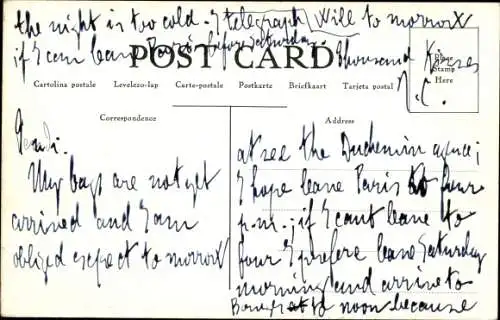 the night is too cold - I telegraph Will to morrow
if I can leave Paris before Saturday. thousand Kisses
POST CARD
Place
Stamp
Here
Cartolina postale Levelezo-lap Carte-postale Postkarte Briefkaart Tarjeta postal
Correspondence
Address
My bags are not yet
arrived and I am
obliged expect to morrow
at see the Duchemin
I hope leave Paris to four
p.m.; if I cant leave to
four I prefere leave Saturday
morning and arrive to
to noon because